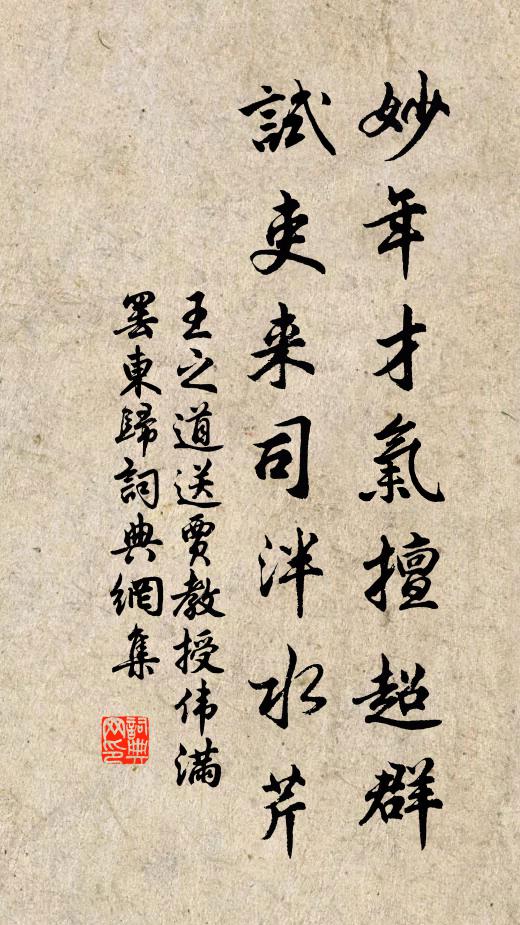 妙年才氣擅超群
試吏来司泮水芹
王之道送贾教授伟满
罢東歸詞典網集
詞典
网印